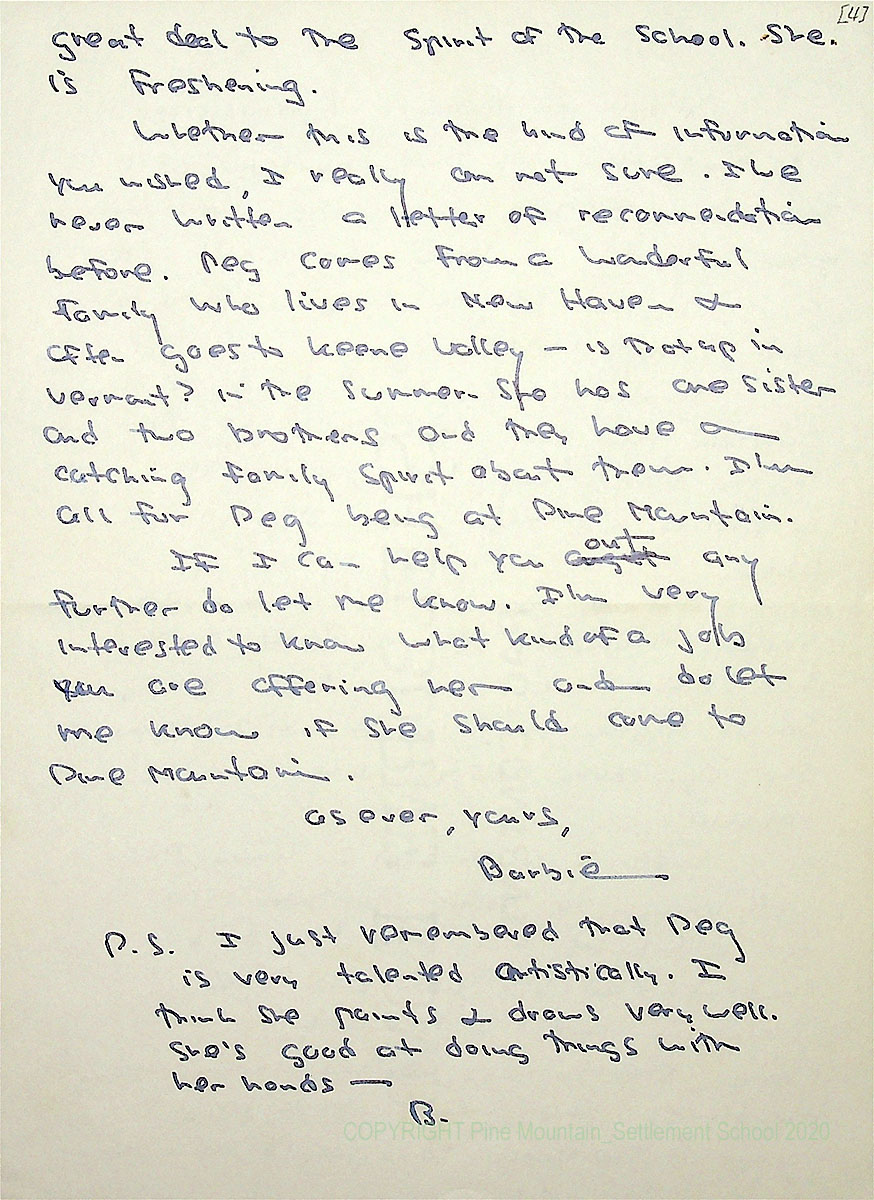 [4]
great deal to the spirit of the school. She.
is freshening.
Whether this is the kind of information
you wished, I really am not sure. I've
never written a letter of recommendation
before. Peg comes from a wonderful
family who lives in New Haven &
often goes to Keene Valley – is that up in
Vermont? in the summer. She has one sister
and two brothers and they have a
catching family spirit about them. I'm
all for Peg being at Pine Mountain.
If I can help you out any
further do let me know. I'm very
interested to know what kind of a job
you are offering her and do let
me know if she should come to
Pine Mountain.
As ever, yours,
Barbie
P.S. I just remembered that Peg
is very talented artistically. I
think she paints & draws very well.
She's good at doing things with
her hands —
B.
COPYRIGHT Pine Mountain Settlement School 2020